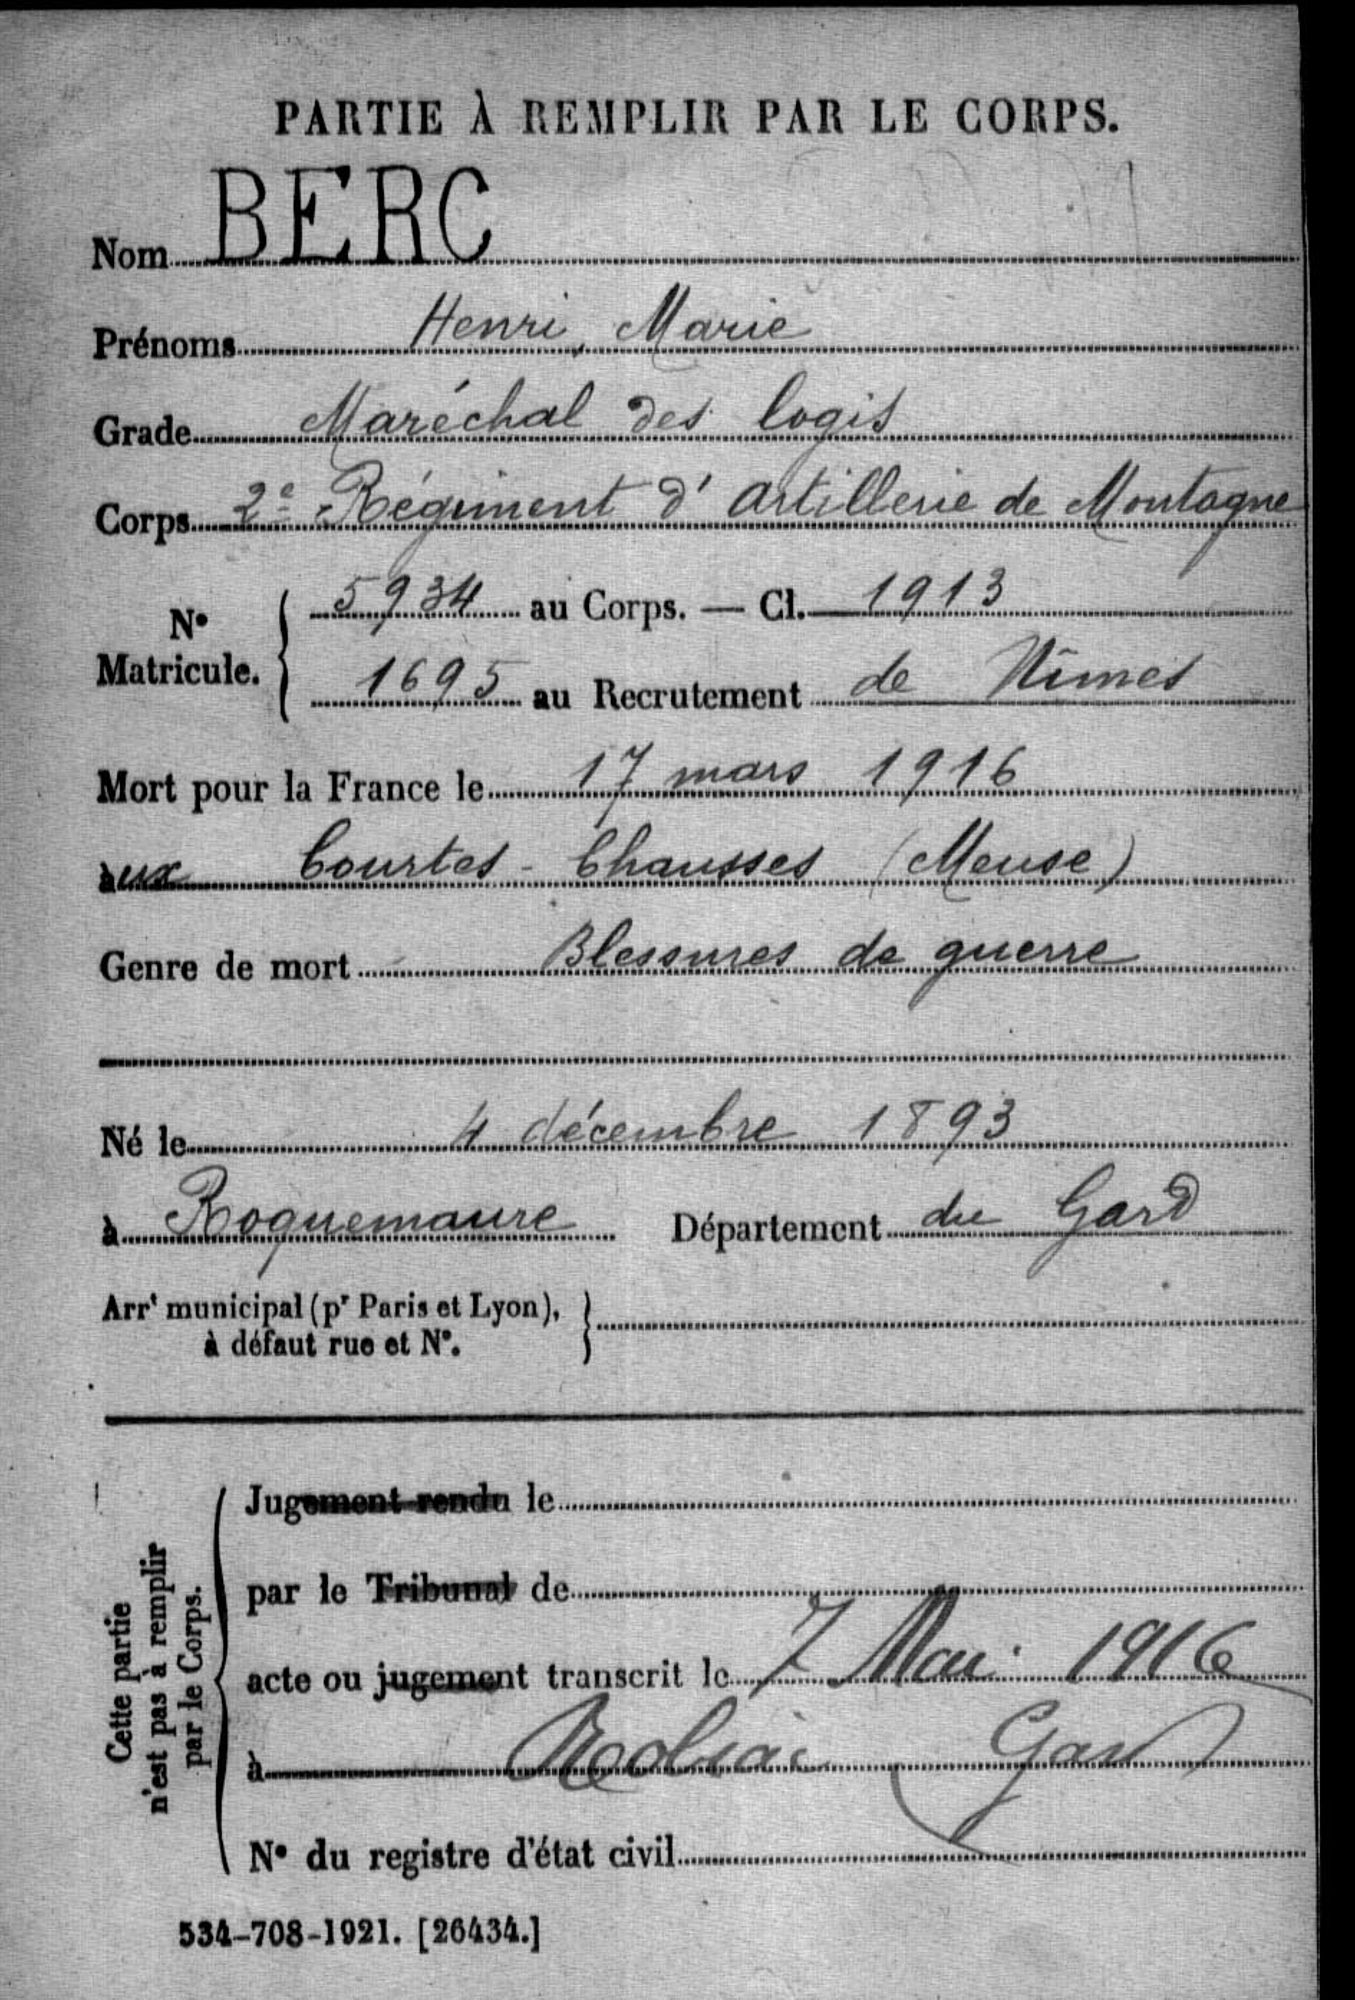 PARTIE À REMPLIR PAR LE CORPS.
Nom BERC
Prénoms Henri, Marie
Grade Maréchal des logis
Corps 2e Régiment d'Artillerie de Montagne
N° Matricule. 5934 au Corps. — Cl. 1913
1695 au Recrutement de Nîmes
Mort pour la France le 17 mars 1916
aux Courtes-Chausses (Meuse)
Genre de mort Blessures de guerre
Né le 4 décembre 1893
à Roquemaure Département du Gard
Arrt municipal (pr Paris et Lyon),
à défaut rue et N°.
Cette partie
n'est pas à remplir
par le Corps.
Jugement rendu le
par le Tribunal de
acte ou jugement transcrit le 7 Mai 1916
à Gard
N° du registre d'état civil
534-708-1921. [26434.]